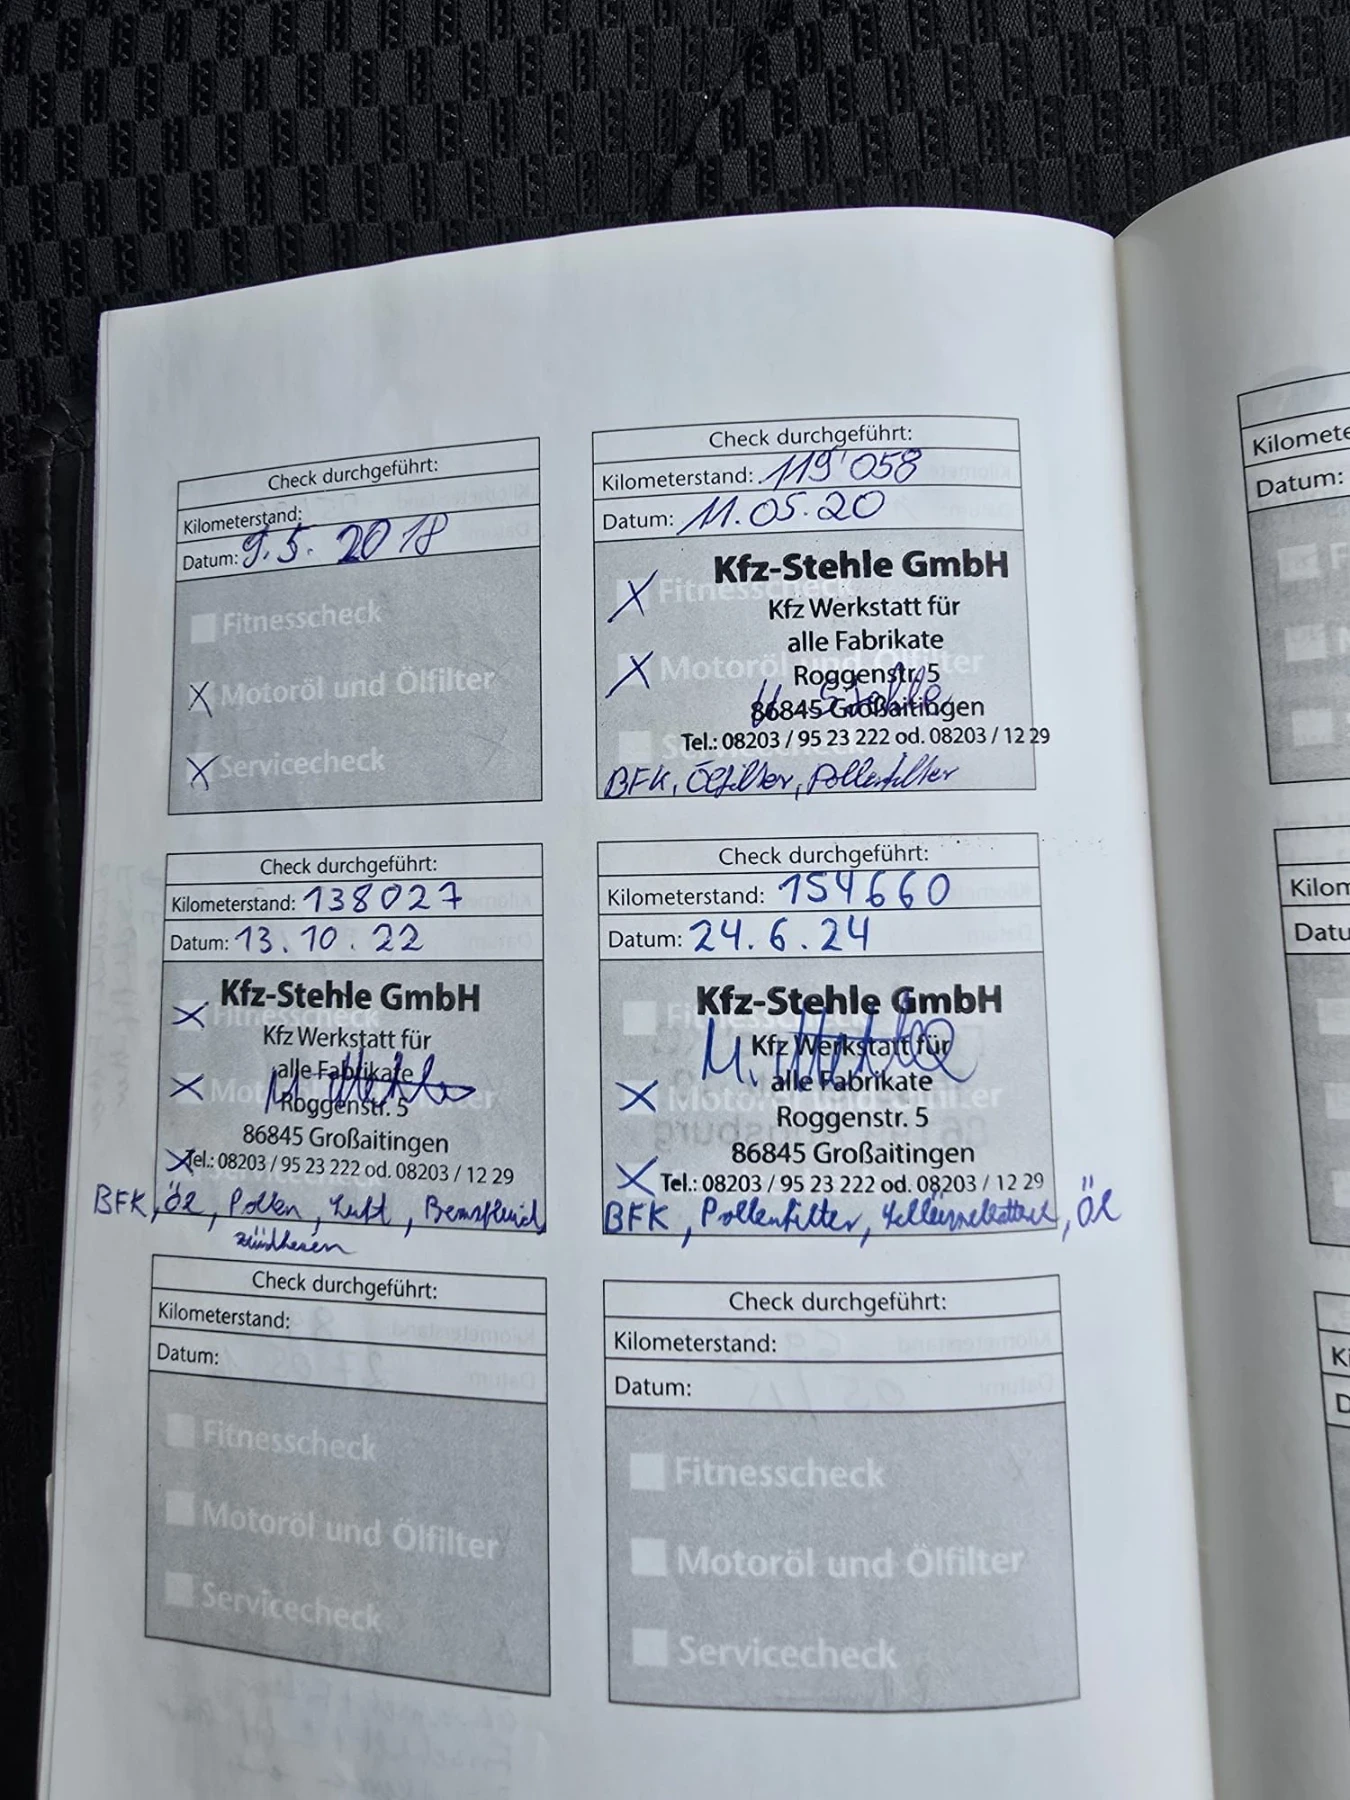 Check durchgeführt:
Kilometerstand:
Datum: 9.5. 2018
Fitnesscheck
X Motoröl und Ölfilter
X Servicecheck
Check durchgeführt:
Kilometerstand: 119'058
Datum: 11.05.20
Kfz-Stehle GmbH
X Fitnesscheck
Kfz Werkstatt für
alle Fabrikate
X Motoröl und Ölfilter
Roggenstr. 5
86845 Großaitingen
Tel.: 08203 / 95 23 222 od. 08203 / 12 29
Servicecheck
BFK, Ölfilter, Pollenfilter
Check durchgeführt:
Kilometerstand: 138027
Datum: 13.10.22
Kfz-Stehle GmbH
X Fitnesscheck
Kfz Werkstatt für
alle Fabrikate
X Motoröl und Ölfilter
Roggenstr. 5
86845 Großaitingen
X Tel.: 08203 / 95 23 222 od. 08203 / 12 29
BFK, Öl, Pollen, Luft,
Check durchgeführt:
Kilometerstand: 154660
Datum: 24.6.24
Kfz-Stehle GmbH
Fitnesscheck
Kfz Werkstatt für
alle Fabrikate
X Motoröl und Ölfilter
Roggenstr. 5
86845 Großaitingen
X Tel.: 08203 / 95 23 222 od. 08203 / 12 29
BFK, Pollenfilter, Öl
Check durchgeführt:
Kilometerstand:
Datum:
Fitnesscheck
Motoröl und Ölfilter
Servicecheck
Check durchgeführt:
Kilometerstand:
Datum:
Fitnesscheck
Motoröl und Ölfilter
Servicecheck
Kilomete
Datum:
Kilom
Datu
Ki
D